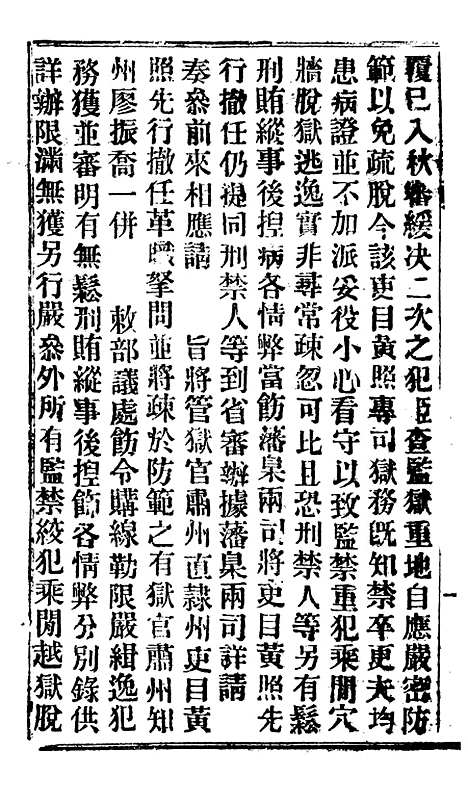 覆已入秋審緩决二次之犯臣查監獄重地自應嚴密防
範以免疏脫今該吏目黃照專司獄務旣知禁卒更夫均
患病證並不加派妥役小心看守以致監禁重犯乘間穴
牆脫獄逃逸實非尋常疎忽可比且恐刑禁人等另有鬆
刑賄縱事後揑病各情弊當飭藩臬兩司將吏目黃照先
行撤任仍提同刑禁人等到省審辦據藩臬兩司詳請
奏叅前來相應請　　旨將管獄官肅州直隷州吏目黃
照先行撤任革職拏問並將疎於防範之有獄官肅州知
州廖振喬一併　　敕部議處飭令購線勒限嚴緝逸犯
務獲並審明有無鬆刑賄縱事後揑飾各情弊分別錄供
詳辦限滿無獲另行嚴叅外所有監禁絞犯乘間越獄脫